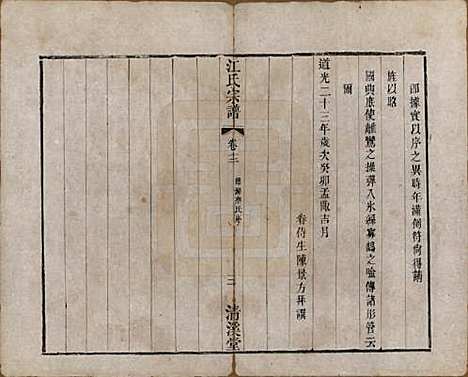 即據實以序之異時年滿例符尚得請
旌以昭
國典庶使離鸞之操彈入氷絲寡鵠之吟傳諸形管云
爾
道光二十三年歲次癸卯孟陬吉月
眷侍生陳景方拜譔
江氏宗譜
卷十二
三
清溪堂